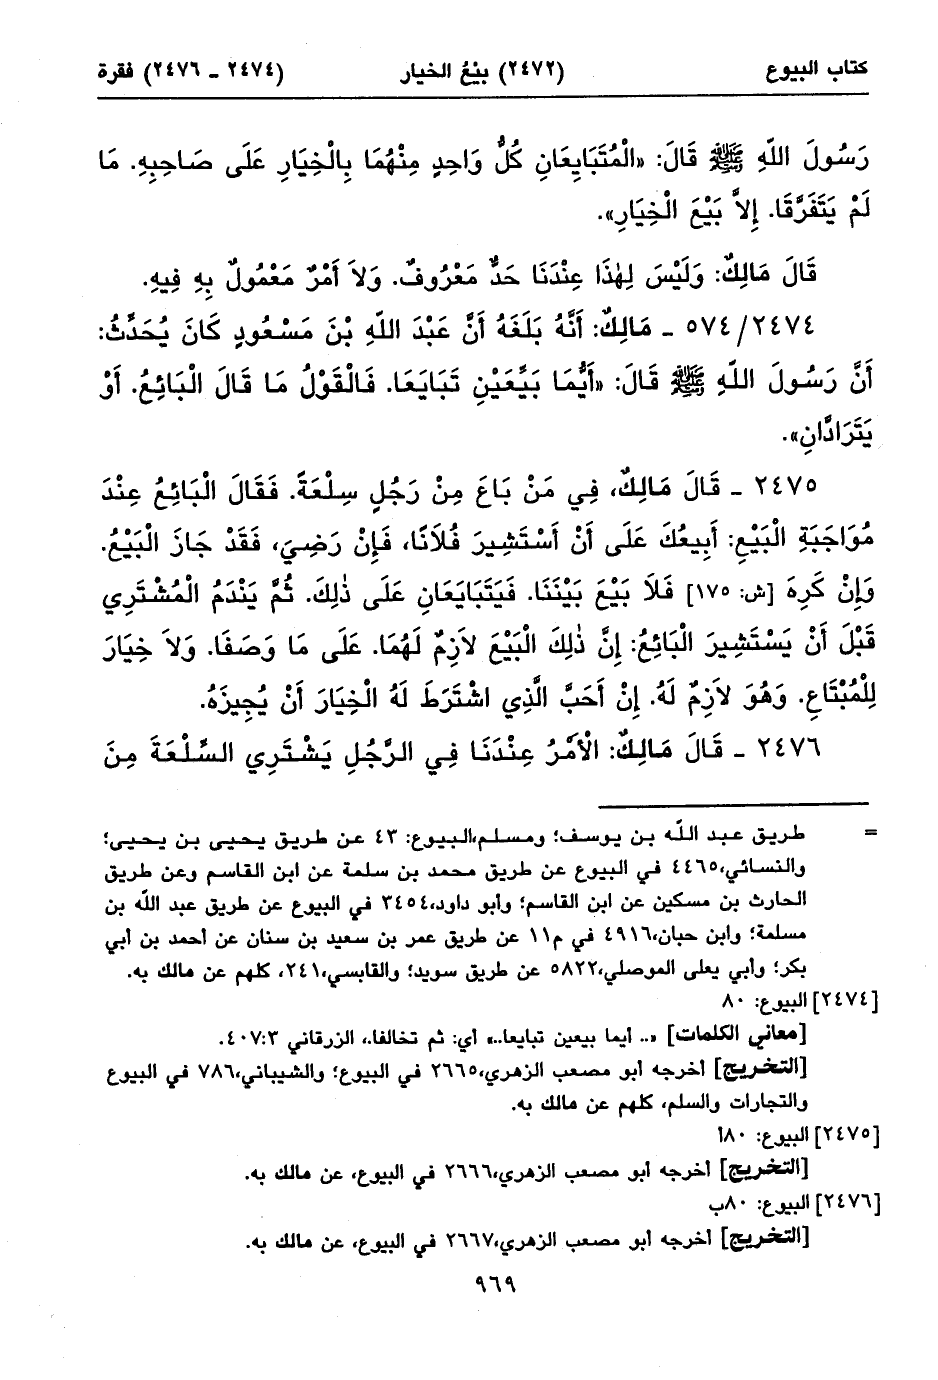 كتاب البيوع (٢٤٧٢) بيْعُ الخيار (٢٤٧٤ - ٢٤٧٦) فقرة
رَسُولَ اللَّهِ ﷺ قَالَ: «الْمُتَبَايِعَانِ كُلُّ وَاحِدٍ مِنْهُمَا بِالْخِيَارِ عَلَى صَاحِبِهِ. مَا
لَمْ يَتَفَرَّقَا. إِلاَّ بَيْعَ الْخِيَارِ».
قَالَ مَالِكٌ: وَلَيْسَ لِهٰذَا عِنْدَنَا حَدٌّ مَعْرُوفٌ. وَلاَ أَمْرٌ مَعْمُولٌ بِهِ فِيهِ.
٥٧٤/٢٤٧٤ - مَالِكٌ: أَنَّهُ بَلَغَهُ أَنَّ عَبْدَ اللَّهِ بْنَ مَسْعُودٍ كَانَ يُحَدِّثُ:
أَنَّ رَسُولَ اللَّهِ ﷺ قَالَ: «أَيُّمَا بَيِّعَيْنِ تَبَايَعَا. فَالْقَوْلُ مَا قَالَ الْبَائِعُ. أَوْ
يَتَرَادَّانِ».
٢٤٧٥ - قَالَ مَالِكٌ، فِي مَنْ بَاعَ مِنْ رَجُلٍ سِلْعَةً. فَقَالَ الْبَائِعُ عِنْدَ
مُوَاجَبَةِ الْبَيْعِ: أَبِيعُكَ عَلَى أَنْ أَسْتَشِيرَ فُلَانًا، فَإِنْ رَضِيَ، فَقَدْ جَازَ الْبَيْعُ.
وَإِنْ كَرِهَ [ش: ١٧٥] فَلاَ بَيْعَ بَيْنَنَا. فَيَتَبَايَعَانِ عَلَى ذٰلِكَ. ثُمَّ يَنْدَمُ الْمُشْتَرِي
قَبْلَ أَنْ يَسْتَشِيرَ الْبَائِعُ: إِنَّ ذٰلِكَ الْبَيْعَ لاَزِمٌ لَهُمَا. عَلَى مَا وَصَفَا. وَلاَ خِيَارَ
لِلْمُبْتَاعِ. وَهُوَ لاَزِمٌ لَهُ. إِنْ أَحَبَّ الَّذِي اشْتَرَطَ لَهُ الْخِيَارَ أَنْ يُجِيزَهُ.
٢٤٧٦ - قَالَ مَالِكٌ: الْأَمْرُ عِنْدَنَا فِي الرَّجُلِ يَشْتَرِي السِّلْعَةَ مِنَ
= طريق عبد اللَّه بن يوسف؛ ومسلم،البيوع: ٤٣ عن طريق يحيى بن يحيى؛
والنسائي،٤٤٦٥ في البيوع عن طريق محمد بن سلمة عن ابن القاسم وعن طريق
الحارث بن مسكين عن ابن القاسم؛ وأبو داود،٣٤٥٤ في البيوع عن طريق عبد اللَّه بن
مسلمة؛ وابن حبان،٤٩١٦ في م١١ عن طريق عمر بن سعيد بن سنان عن أحمد بن أبي
بكر؛ وأبي يعلى الموصلي،٥٨٢٢ عن طريق سويد؛ والقابسي،٢٤١، كلهم عن مالك به.
[٢٤٧٤] البيوع: ٨٠
[معاني الكلمات] «.. أيما بيعين تبايعا..» أي: ثم تخالفا.، الزرقاني ٤٠٧:٣.
[التخريج] أخرجه أبو مصعب الزهري،٢٦٦٥ في البيوع؛ والشيباني،٧٨٦ في البيوع
والتجارات والسلم، كلهم عن مالك به.
[٢٤٧٥] البيوع: ٨٠أ
[التخريج] أخرجه أبو مصعب الزهري،٢٦٦٦ في البيوع، عن مالك به.
[٢٤٧٦] البيوع: ٨٠ب
[التخريج] أخرجه أبو مصعب الزهري،٢٦٦٧ في البيوع، عن مالك به.
٩٦٩